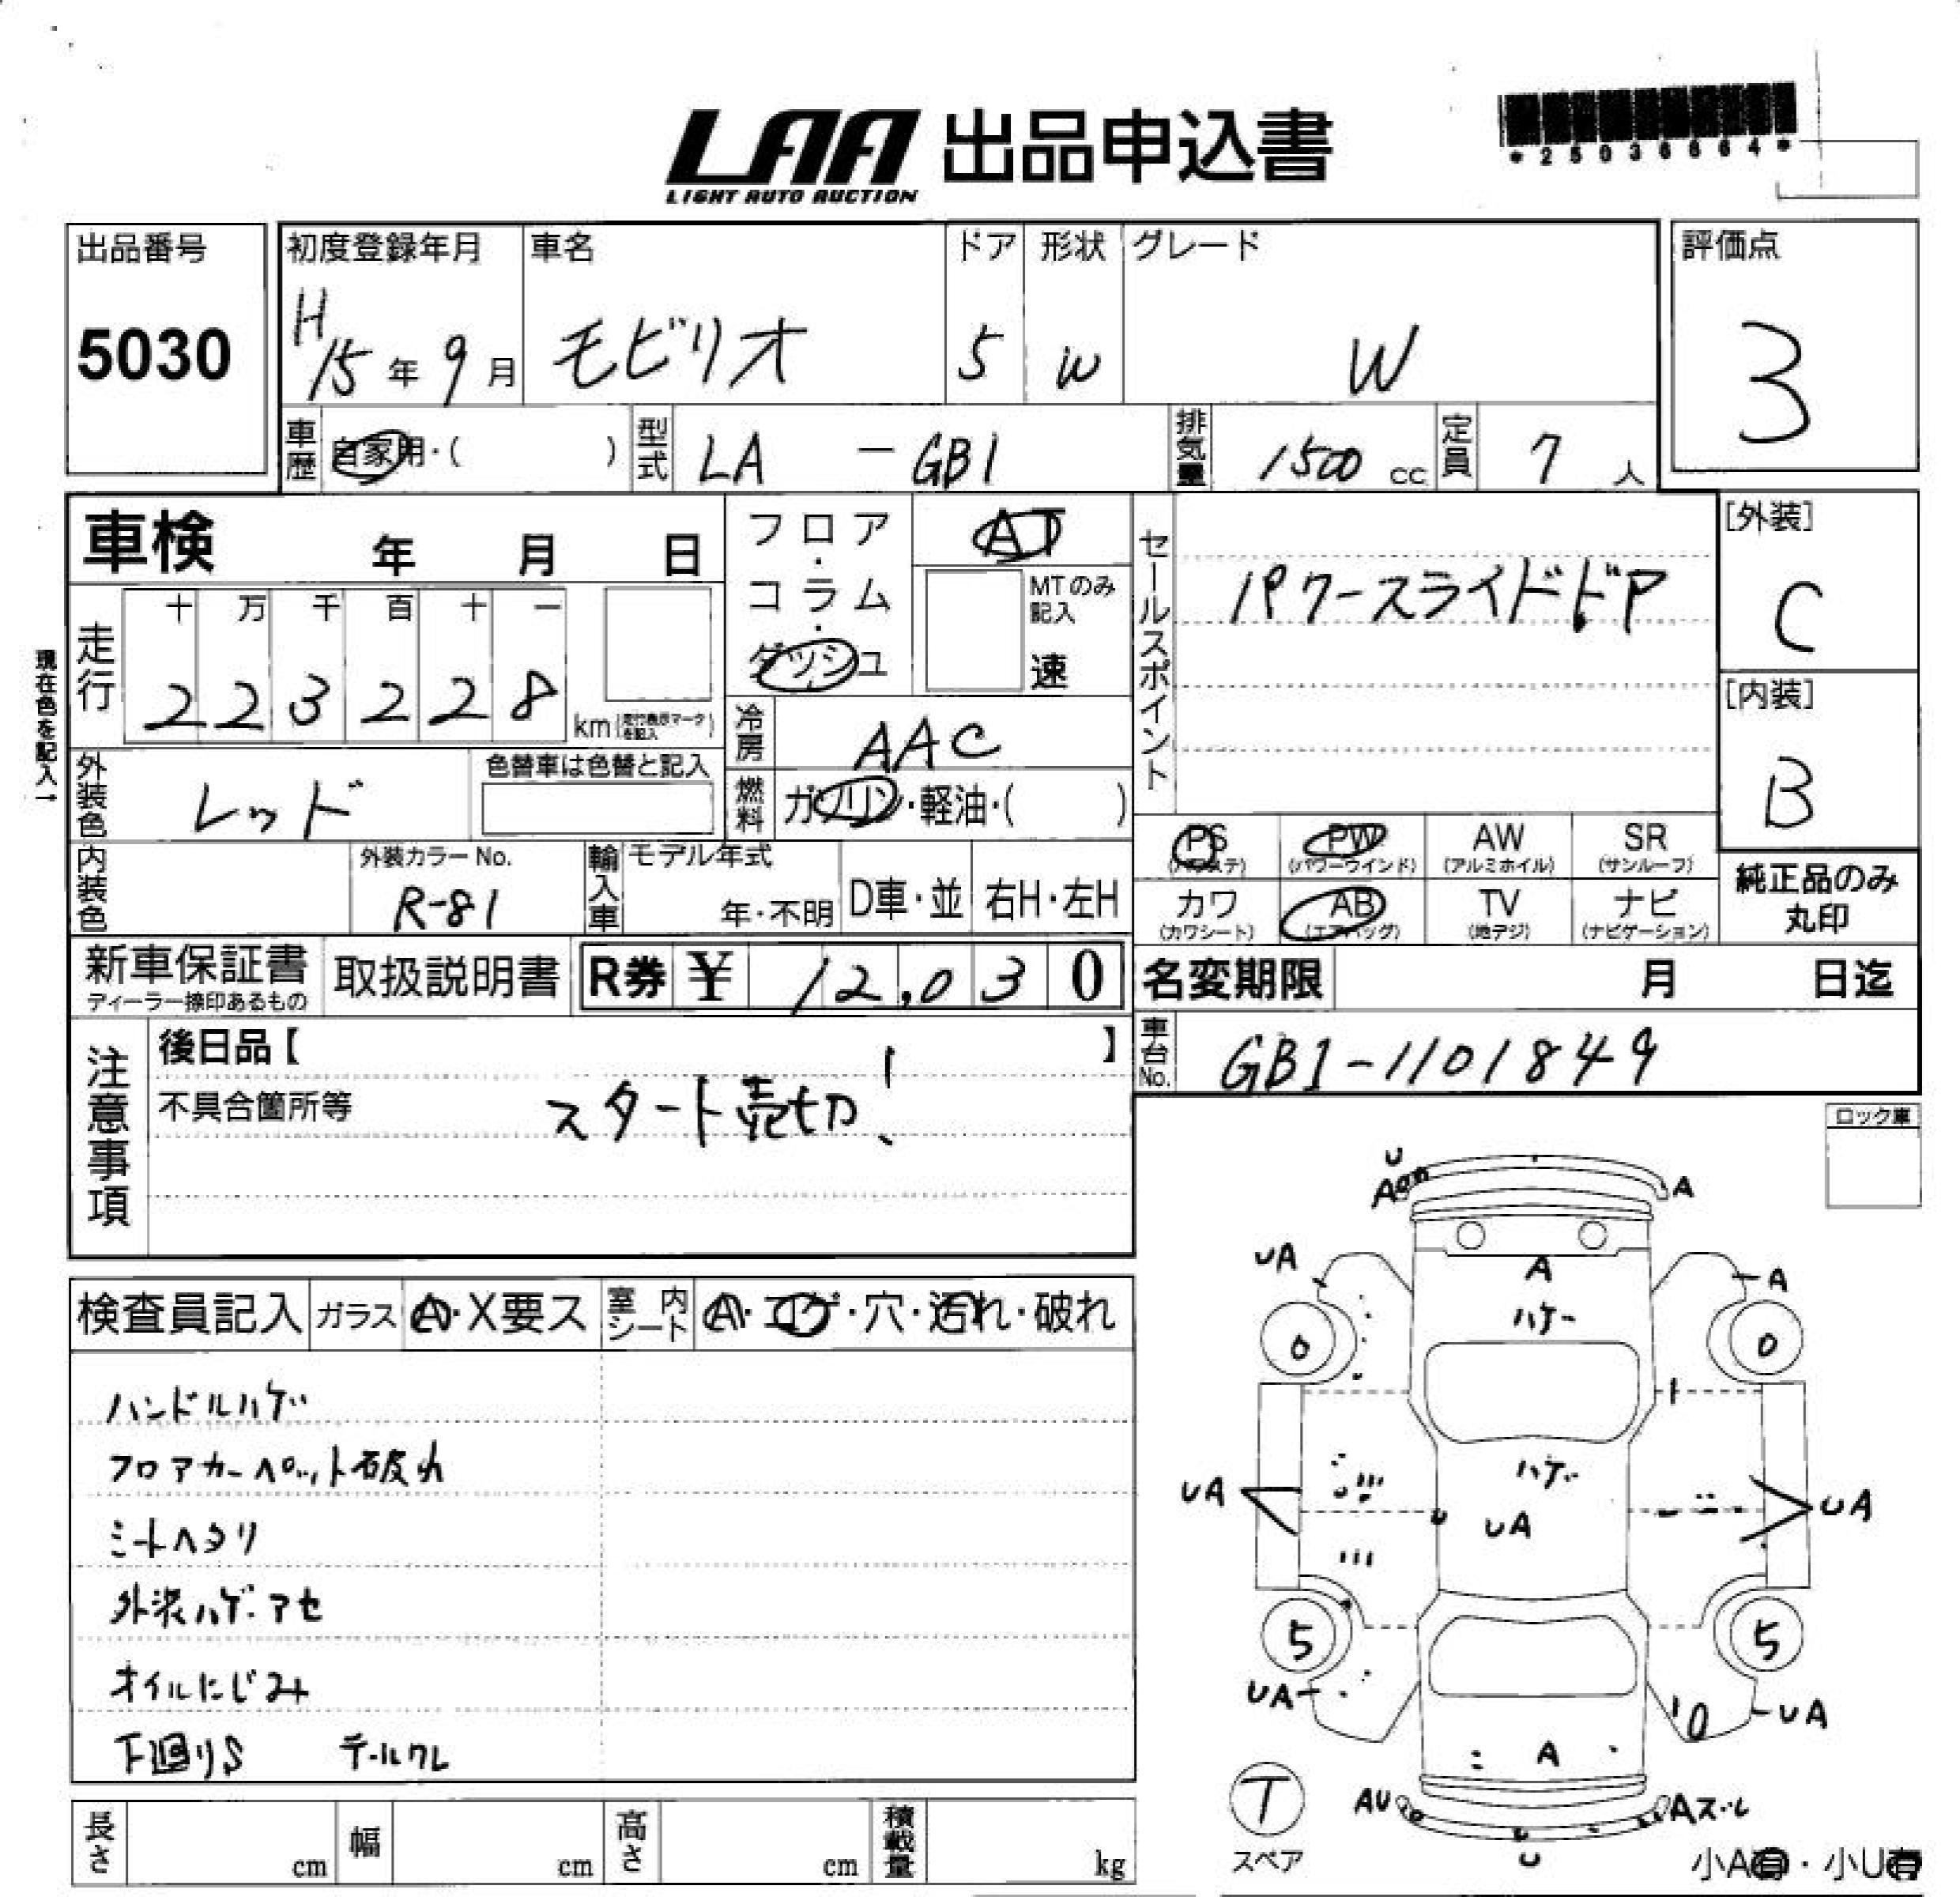 LAA 出品申込書
LIGHT AUTO AUCTION
*25036664*
出品番号
5030
初度登録年月
H15年9月
車名
モビリオ
ドア
5
形状
W
グレード
W
評価点
3
車歴 自家用・( )
型式 LA - GB1
排気量 1500 cc
定員 7 人
車検 年 月 日
走行
十 万 千 百 十 一
2 2 3 2 2 8
km
現在色を記入→
フロア・コラム・ダッシュ
AT
MTのみ記入
速
冷房 AAC
燃料 ガソリン・軽油・( )
セールスポイント
パワースライドドア
[外装]
C
[内装]
B
外装色 レッド
色替車は色替と記入
内装色
外装カラーNo.
R-81
輸入車
モデル年式
年・不明
D車・並
右H・左H
PS
(パワステ)
PW
(パワーウインド)
AW
(アルミホイル)
SR
(サンルーフ)
カワ
(カワシート)
AB
(エアバッグ)
TV
(地デジ)
ナビ
(ナビゲーション)
純正品のみ
丸印
新車保証書
ディーラー捺印あるもの
取扱説明書
R券 ¥ 12,030
名変期限 月 日迄
車台No. GB1-1101849
注意事項
後日品【 】
不具合箇所等
スタート売切!
ロック車
検査員記入
ガラス A・X要ス
室内シート A・コゲ・穴・汚れ・破れ
ハンドルハゲ
フロアカーペット破れ
シートヘタリ
外装ハゲ・アセ
オイルにじみ
下廻りS テールワレ
U
A
A
UA
A
A
ハゲ
0
0
ハゲ
UA
UA
UA
5
5
UA
UA
A
T
スペア
AU
Aズレ
U
小A有・小U有
長さ cm
幅 cm
高さ cm
積載量 kg